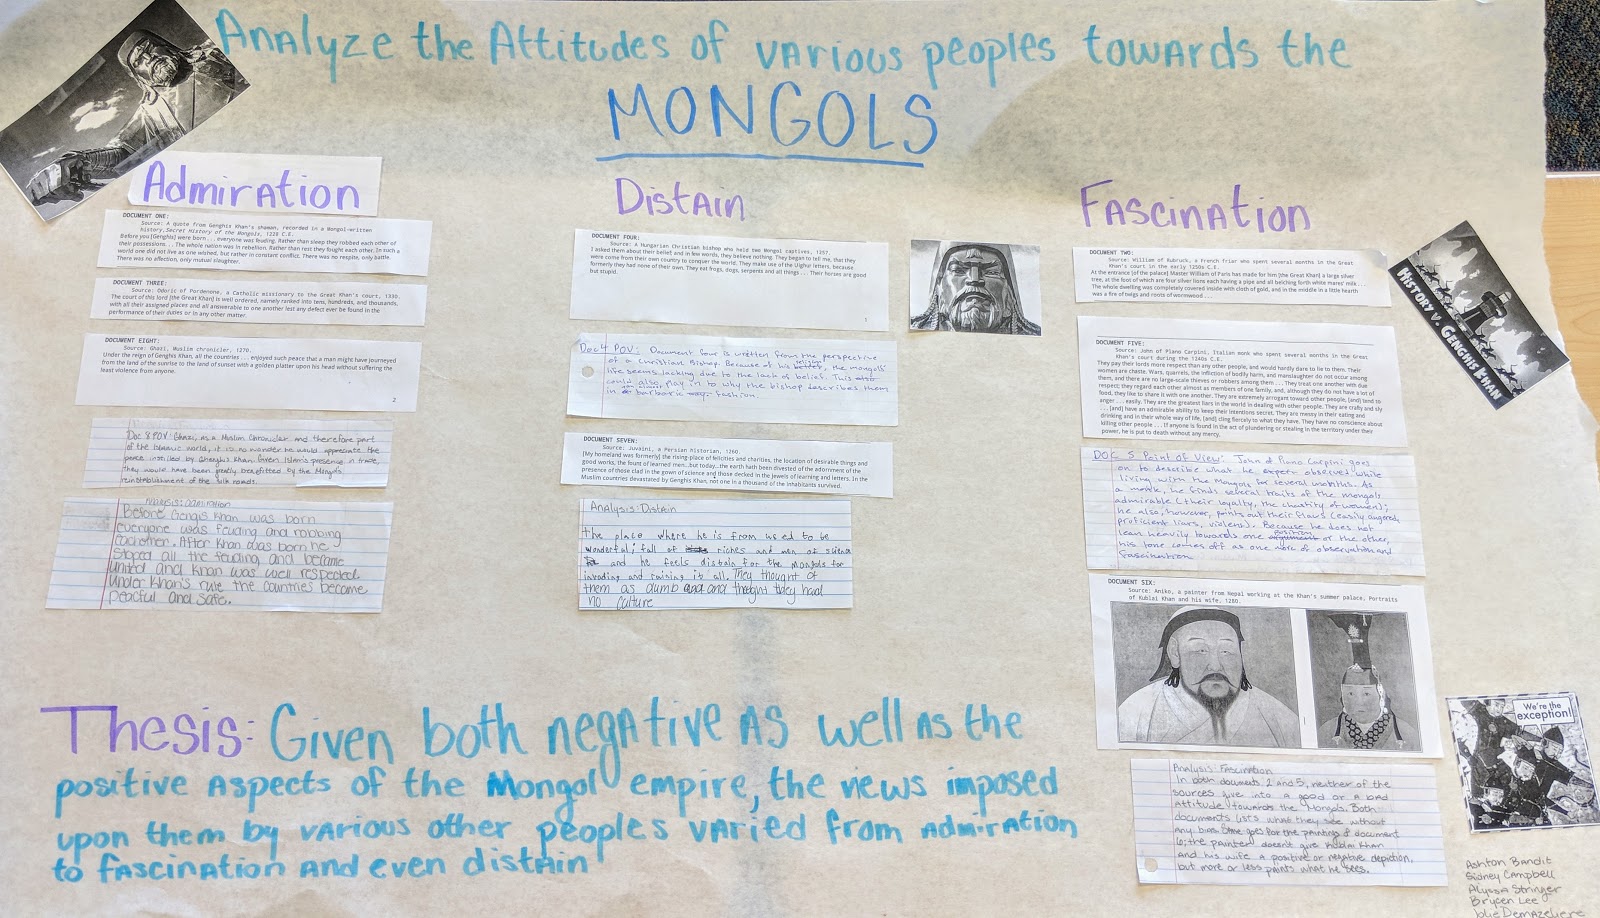 Analyze the Attitudes of various peoples towards the
MONGOLS
Admiration
DOCUMENT ONE:
Source: A quote from Genghis Khan's shaman, recorded in a Mongol-written
history, Secret History of the Mongols, 1228 C.E.
Before you [Genghis] were born . . . everyone was feuding. Rather than sleep they robbed each other of
their possessions . . . The whole nation was in rebellion. Rather than rest they fought each other. In such a
world one did not live as one wished, but rather in constant conflict. There was no respite, only battle.
There was no affection, only mutual slaughter.
DOCUMENT THREE:
Source: Odoric of Pordenone, a Catholic missionary to the Great Khan's court, 1330.
The court of this lord [the Great Khan] is well ordered, namely ranked into tens, hundreds, and thousands,
with all their assigned places and all answerable to one another lest any defect ever be found in the
performance of their duties or in any other matter.
DOCUMENT EIGHT:
Source: Ghazi, Muslim chronicler, 1270.
Under the reign of Genghis Khan, all the countries . . . enjoyed such peace that a man might have journeyed
from the land of the sunrise to the land of sunset with a golden platter upon his head without suffering the
least violence from anyone.
2
Doc 8 POV: Ghazi, as a Muslim Chronicler and therefore part
of the Islamic world, it is no wonder he would appreciate the
peace instilled by Ghenghis Khan. Given Islam's presence in trade,
they would have been greatly benefitted by the Mongols
reinstablishment of the silk roads.
Analysis: admiration
Before Gengis Khan was born
everyone was feuding and robbing
eachother. After Khan was born he
stoped all the feuding and became
united and Khan was well respected
under Khan's rule the countries became
peaceful and safe.
Distain
DOCUMENT FOUR:
Source: A Hungarian Christian bishop who held two Mongol captives, 1257.
I asked them about their belief; and in few words, they believe nothing. They began to tell me, that they
were come from their own country to conquer the world. They make use of the Uighur letters, because
formerly they had none of their own. They eat frogs, dogs, serpents and all things . . Their horses are good
but stupid.
1
Doc 4 POV: Document four is written from the perspective
of a Christian Bishop. Because of his religion, the mongols'
life seems lacking due to the lack of belief. This
could also play in to why the bishop describes them
in a barbaric fashion.
DOCUMENT SEVEN:
Source: Juvaini, a Persian historian, 1260.
[My homeland was formerly] the rising-place of felicities and charities, the location of desirable things and
good works, the fount of learned men...but today...the earth hath been divested of the adornment of the
presence of those clad in the gown of science and those decked in the jewels of learning and letters. In the
Muslim countries devastated by Genghis Khan, not one in a thousand of the inhabitants survived.
Analysis: Distain
the place where he is from used to be
wonderful; full of riches and men of science
and he feels distain for the mongols for
invading and ruining it all. They thought of
them as dumb and and thought they had
no culture
Fascination
DOCUMENT TWO:
Source: William of Rubruck, a French friar who spent several months in the Great
Khan's court in the early 1250s C.E.
At the entrance [of the palace] Master William of Paris has made for him [the Great Khan] a large silver
tree, at the foot of which are four silver lions each having a pipe and all belching forth white mares' milk . . .
The whole dwelling was completely covered inside with cloth of gold, and in the middle in a little hearth
was a fire of twigs and roots of wormwood . . .
DOCUMENT FIVE:
Source: John of Plano Carpini, Italian monk who spent several months in the Great
Khan's court during the 1240s C.E.
They pay their lords more respect than any other people, and would hardly dare to lie to them. Their
women are chaste. Wars, quarrels, the infliction of bodily harm, and manslaughter do not occur among
them, and there are no large-scale thieves or robbers among them . . . They treat one another with due
respect; they regard each other almost as members of one family, and, although they do not have a lot of
food, they like to share it with one another. They are extremely arrogant toward other people, [and] tend to
anger . . . easily. They are the greatest liars in the world in dealing with other people. They are crafty and sly
. . . [and] have an admirable ability to keep their intentions secret. They are messy in their eating and
drinking and in their whole way of life, [and] cling fiercely to what they have. They have no conscience about
killing other people . . . If anyone is found in the act of plundering or stealing in the territory under their
power, he is put to death without any mercy.
DOC 5 Point of View: John of Plano Carpini goes
on to describe what he observed while
living with the Mongols for several months. As
a monk, he finds several traits of the mongols
admirable (their loyalty, the chastity of women);
he also, however, points out their flaws (easily angered,
proficient liars, violent). Because he does not
lean heavily towards one position or the other,
his tone comes off as one of observation and
fascination.
DOCUMENT SIX:
Source: Aniko, a painter from Nepal working at the Khan's summer palace, Portraits
of Kublai Khan and his wife, 1280.
Analysis: Fascination
In both documents 2 and 5, neither of the
sources give into a good or a bad
attitude towards the Mongols. Both
documents lists what they see without
any bias. Same goes for the painting of document
6; the painter doesn't give Kublai Khan
and his wife a positive or negative depiction,
but more or less paints what he sees.
HISTORY V. GENGHIS KHAN
We're the
exception!
Thesis: Given both negative as well as the
positive aspects of the Mongol empire, the views imposed
upon them by various other peoples varied from admiration
to fascination and even distain
Ashton Bandit
Sidney Campbell
Alyssa Stringer
Brycen Lee